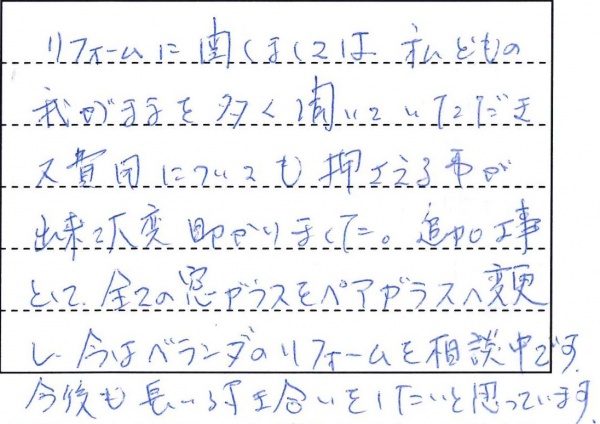 リフォームに関しましては 私どもの
我がままを多く聞いていただき
又費用についても押さえる事が
出来て大変助かりました。追加工事
として、全ての窓ガラスをペアガラスへ変更
し、今はベランダのリフォームを相談中です。
今後も長いお付き合いをしたいと思っています。